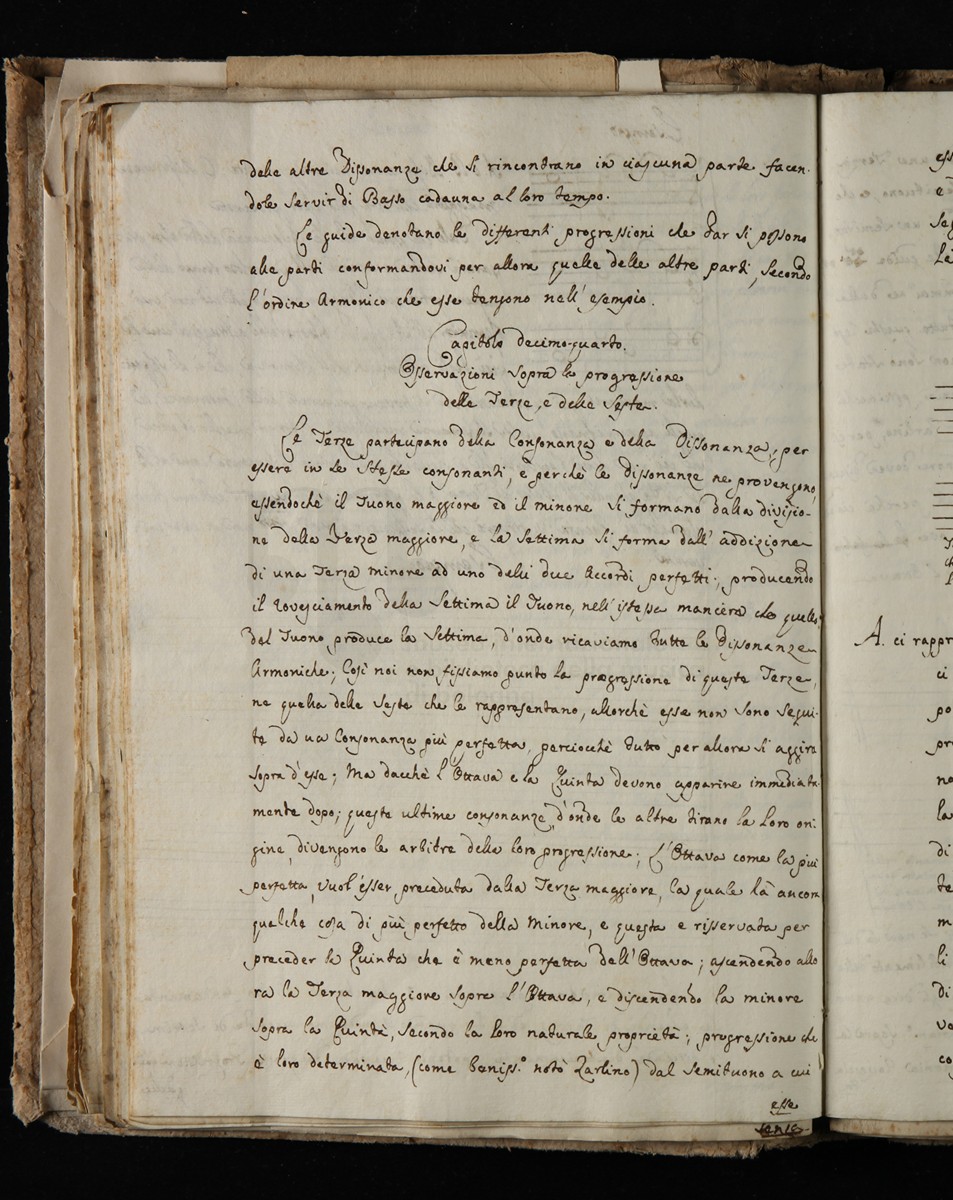 delle altre Dissonanze che si rincontrano in ciascuna parte facen-
dole servir di Basso cadauna al loro tempo.
Le guide denotano le differenti progressioni che dar si possono
alle parti conformandovi per allora quelle delle altre parti, secondo
l'ordine Armonico che esse tengono nell'esempio.
Capitolo decimo-quarto.
Osservazioni sopra la progressione
delle Terze, e delle Seste.
Le Terze partecipano della Consonanza e della Dissonanza, per
essere in se stesse consonanti, e perchè le Dissonanze ne provengono,
essendochè il Tuono maggiore ed il minore si formano dalla divisio-
ne della Terza maggiore, e la Settima si forma dall'addizione
di una Terza minore ad uno delli due Accordi perfetti; producendo
il rovesciamento della Settima il Tuono, nell'istessa maniera che quello
del Tuono produce la Settima, d'onde ricaviamo tutte le Dissonanze
Armoniche; Così noi non fissiamo punto la progressione di queste Terze,
ne quella delle Seste che le rappresentano, allorchè esse non sono segui-
te da una Consonanza più perfetta, perciocchè tutto per allora si aggira
sopra d'esse; Ma dacchè l'Ottava e la Quinta devono apparire immediata-
mente dopo; queste ultime consonanze, d'onde le altre tirano la loro ori-
gine, divengono le arbitre della loro progressione; L'Ottava come la più
perfetta, vuol'esser preceduta dalla Terza maggiore, la quale hà ancor
qualche cosa di più perfetto della Minore, e questa e risservata per
preceder la Quinta che è meno perfetta dell'Ottava; ascendendo allo
ra la Terza maggiore sopra l'Ottava, e discendendo la minore
sopra la Quinta, secondo la loro naturale proprietà; progressione che
è loro determinata, (come beniss.o notò Zarlino) dal semituono a cui
esse
A. ci rappr